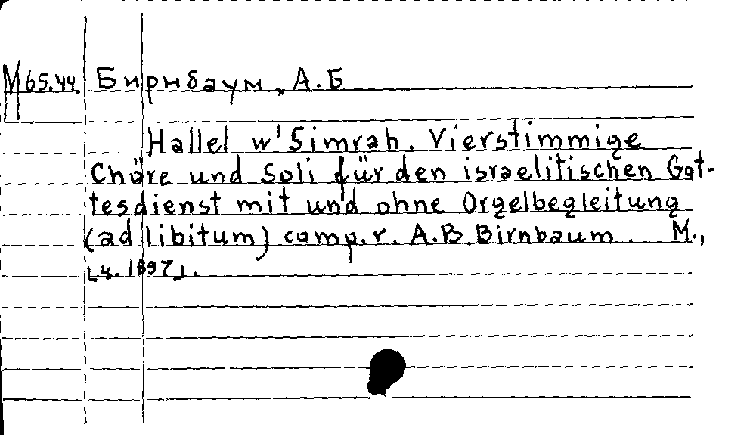 М65.44. Бирнбаум, А.Б
Hallel w'Simrah. Vierstimmige
Chöre und Soli für den israelitischen Got-
tesdienst mit und ohne Orgelbegleitung
(ad libitum) comp. v. A.B. Birnbaum. M.,
[ц. 1897].